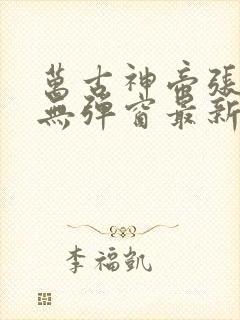 萬古神帝張
無彈窗最新
李福凱